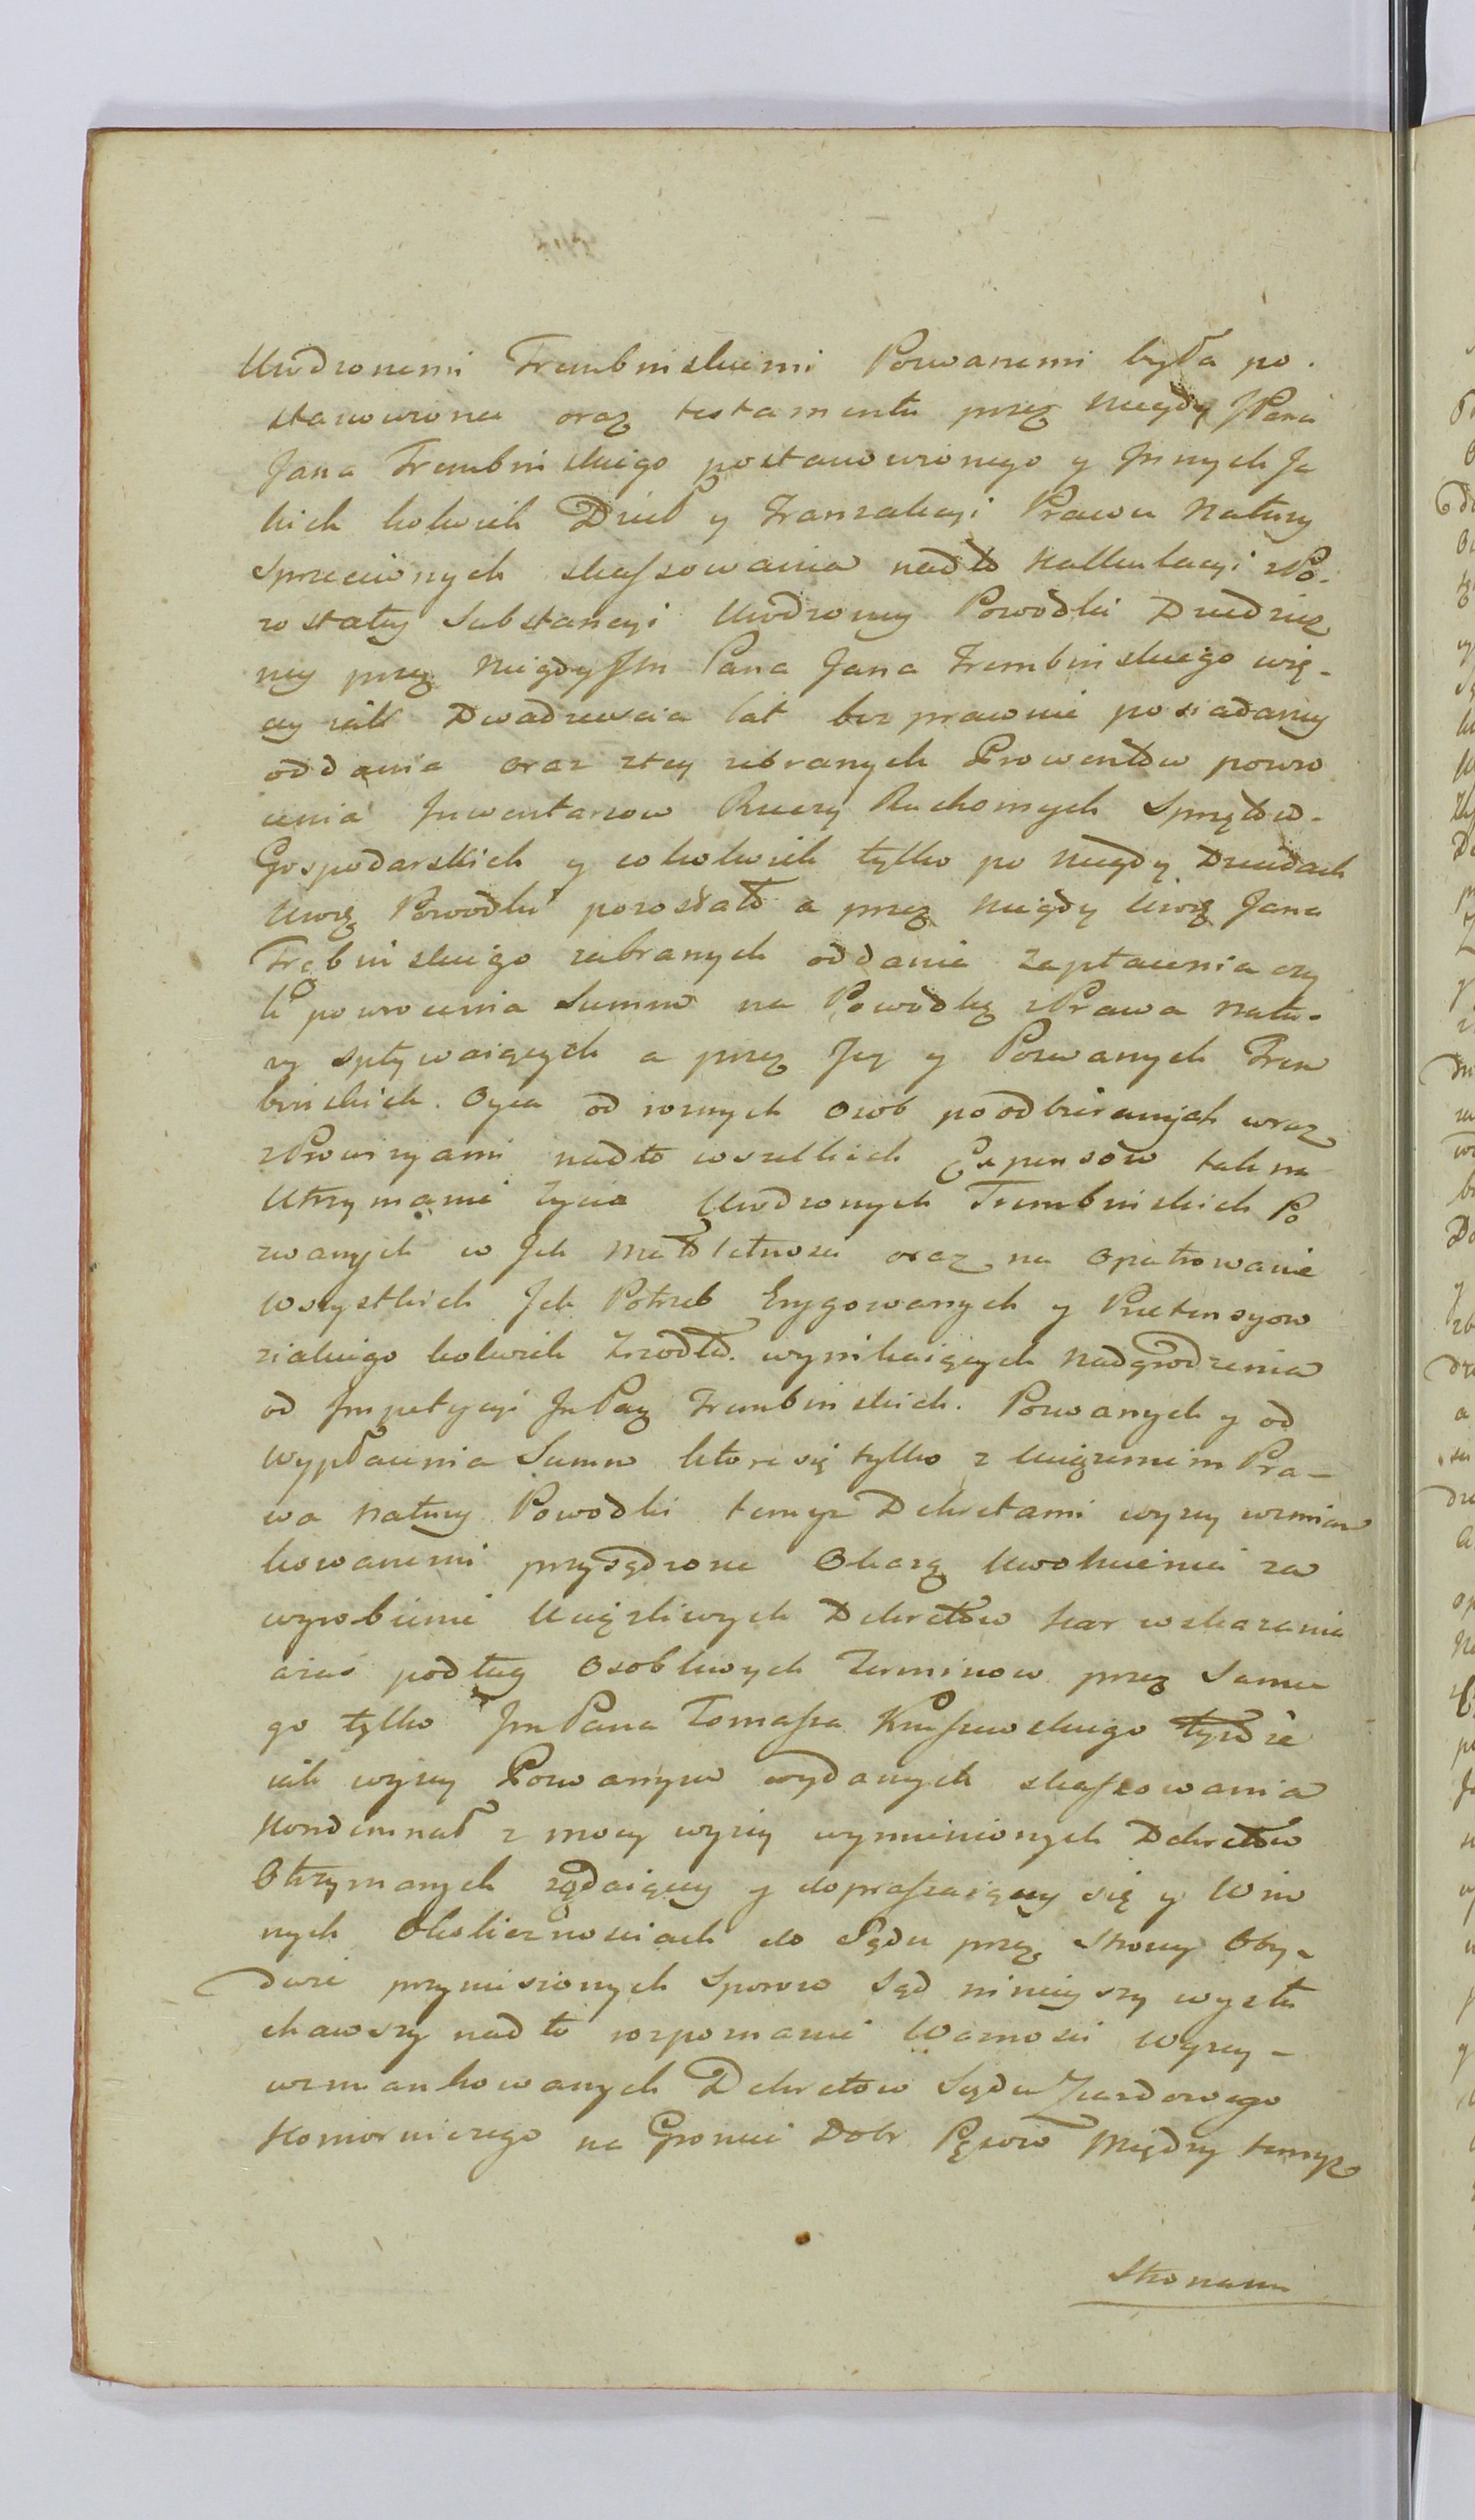 Urodzonemi Trembinskiemi Pozwanemi była po-
stanowiona oraz testamentu przez niegdy JPana
Jana Trembinskiego postanowionego y Jnnych Ja
kich kolwiek Dzieł y Tranzakcyi Prawu Natury
Sprzeciwnych skassowania nadto Kalkulacyi zPo-
zostałey Substancyi Urodzoney Powodki Dziedzicz
ney przez Niegdy Jm Pana Jana Trembinskiego wię-
cey jak Dwadziescia lat bezprawnie posiadaney
oddania oraz ztey zebranych Prowentow powro
cenia Jnwentarzow Rzeczy Ruchomych Sprzętow-
Gospodarskich y cokolwiek tylko po Niegdy Dziadach
Urodz Powodki pozostało a przez niegdy Urodz Jana
Trębinskiego zabranych oddania zapłacenia czy
li powrocenia Summ na Powodkę zPrawa Natu-
ry spływaiących a przez Jey y Pozwanych Trem
binskich Oyca od roznych osob poodbieranych wraz
zProwizyami nadto wszelkich Expensow tak na
Utrzymanie życia Urodzonych Trembinskich Po
zwanych w Jch małoletnosci oraz na Opatrowanie
wszystkich Jch Potrzeb Erygowanych y Pretensyow
ziakiego kolwiek Zrzodła wynikaiących Nadgrodzenia
od Jmpetycyi Jch Pań Trembinskich Pozwanych y od
wypłacenia Summ ktore się tylko z Uciążeniem Pra-
wa Natury Powodki temyz Dekretami wyzey wzmian
kowanemi przysądzone Okażą Uwolnienia za
wyrobienie Uciązliwych Dekretow kar wskazania
azas podług Osobliwych Terminow przez same
go tylko Jm Pana Tomasza Kruszewskiego tydzie
iak wyzey Pozwanym wydanych skassowania
Kondemnat z mocy wyzey wymienionych Dekretow
Otrzymanych ządaiącey y dopraszaiącey się y w in
nych Okolicznosciach do Sądu przez strony Oby-
dwie przyniesionych Sporow Sąd ninieyszy wysłu
chawszy nadto rozpoznanie Waznosci Wyzey-
wzmiankowanych Dekretow Sądu Ziazdowego
Komorniczego na Groncie Dobr Pęsow Między temyz
Stronami